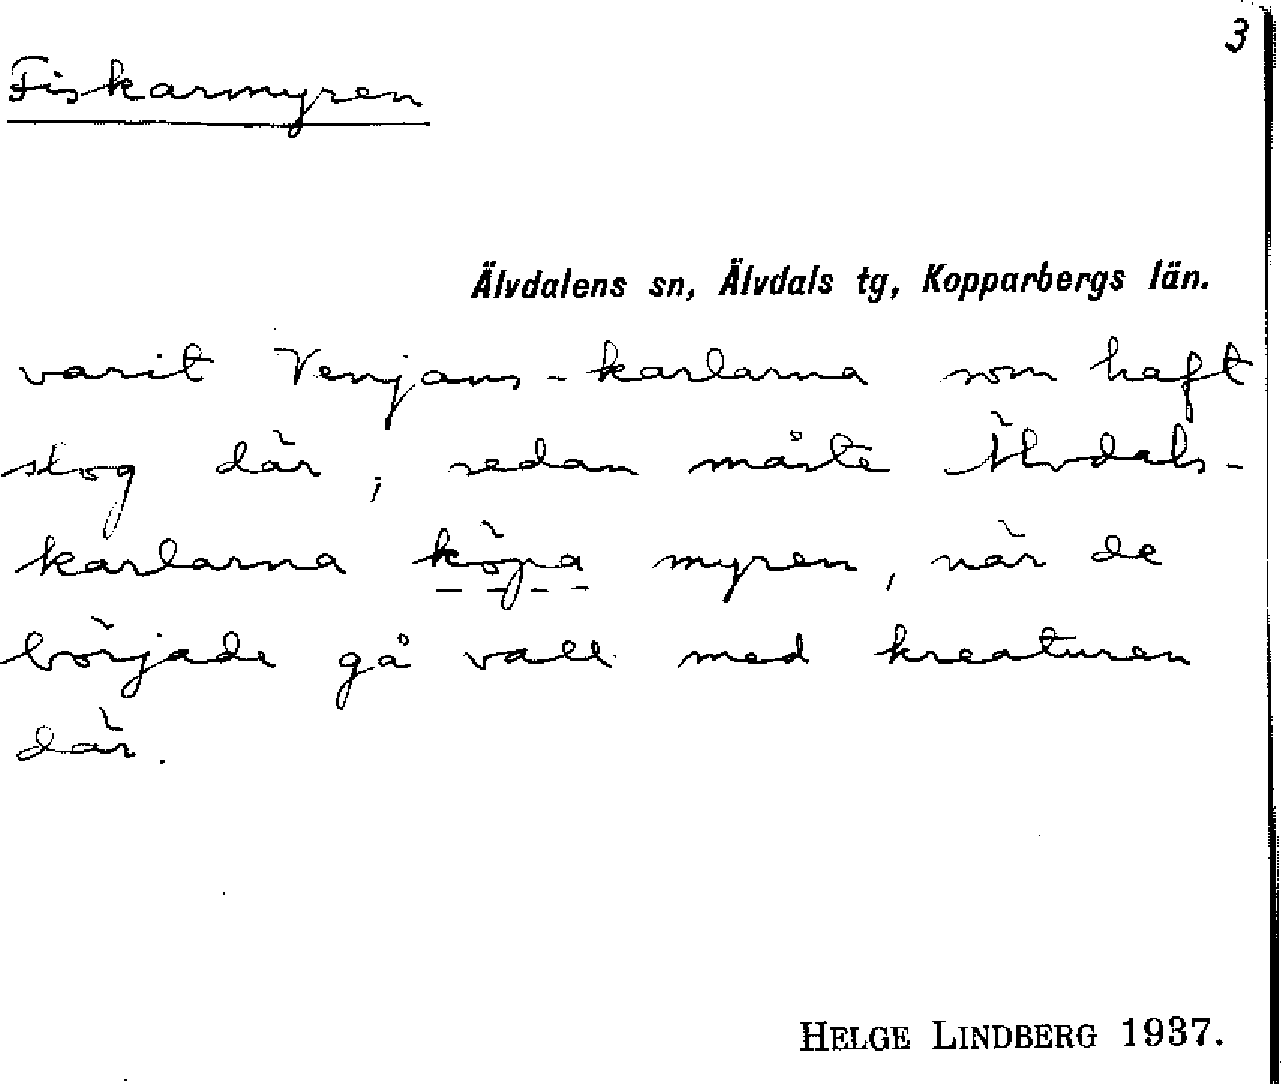 3
Fiskarmyren
Älvdalens sn, Älvdals tg, Kopparbergs län.
varit Venjans-karlarna som haft
skog där, sedan måste Älvdals-
karlarna köpa myren, när de
började gå vall med kreaturen
där.
HELGE LINDBERG 1937.